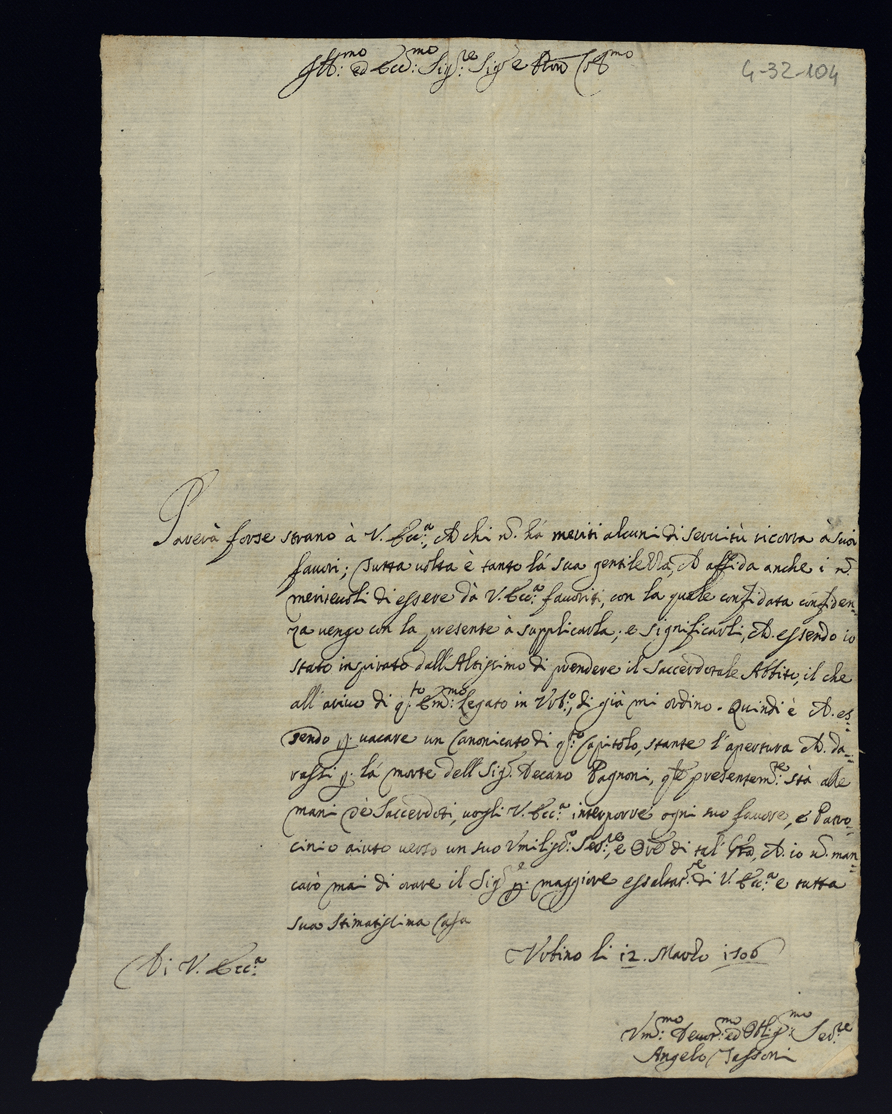 Ill:mo ed Ecc:mo Sig:re Sig:e Pron Col:mo
4-32-104
Parerà forse strano à V. Ecc:a, ch chi n. hà meriti alcuni di servitù ricorra à suoi
favori; tutta volta è tanto la sua gentilezza, ch affida anche i n.
meritevoli di essere dà V. Ecc:a favoriti, con la quale confidata confiden=
za vengo con la presente à supplicarla, e significarli, ch. essendo io
stato inspirato dall'Altissimo di prendere il Saccerdotale Abbito, il che
all'arivo di q:to Em:mo Legato in Urb:o, di già mi ordino. Quindi è ch. es=
sendo p. vacare un Canonicato di q:o Capitolo, stante l'apertura ch. da=
rassi p. la morte dell Sig:r Decano Pagnoni, qle presentem:te stà alle
mani de Saccerdoti, vogli V. Ecc:a interporre ogni suo favore, e Patro=
cinio aiuto verso un suo Umiliss:o Ser:re, e di tal ch. io n. man=
carò mai di orare il Sig:e p. maggiore essaltaz:e di V. Ecc:a e tutta
sua Stimatissima Casa
Urbino li 12. Marzo 1706
Di V. Ecc:a
Um:mo Devot:mo ed Obl:mo Ser:re
Angelo Tassoni